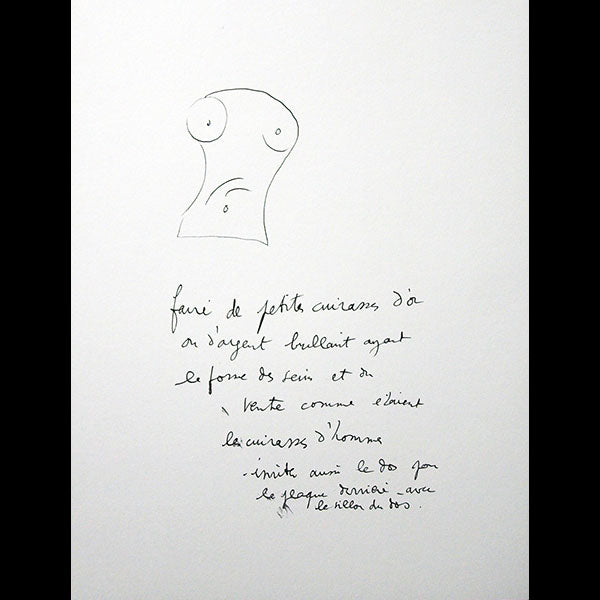 faire de petites cuirasses d'or
ou d'argent brillant ayant
la forme des seins et du
ventre comme étaient
les cuirasses d'homme
- imiter aussi le dos par
la plaque derrière - avec
le sillon du dos.